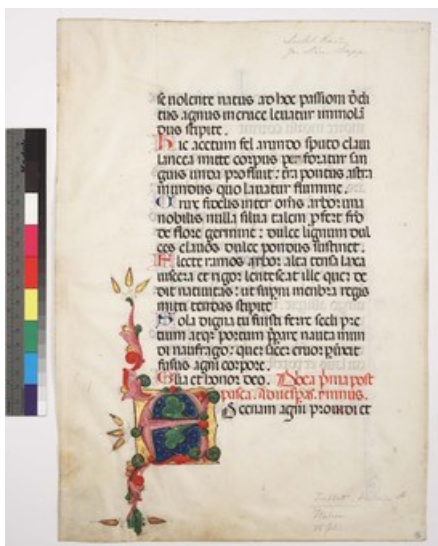 se nolente natus ad hoc passioni dedi
tus agnus in cruce levatur immolan
dus stipite.
Hic acetum fel arundo sputo clavi
lancea mitte corpus perforatur san
guis unda profluit: terra pontus astra
mundus quo lavatur flumine.
Crux fidelis inter omnes arbor una
nobilis nulla silva talem profert fronde
flore germine: dulce lignum dul
ces clavos dulce pondus sustinet.
Flecte ramos arbor alta tensa laxa
viscera et rigor lentescat ille quem de
dit nativitas: ut superni membra regis
miti tendas stipite
Sola digna tu fuisti ferre secli pre
cium atque portum preparare nauta mun
do naufrago: quem sacer cruor perunxit
fusus agni corpore.
Gloria et honor deo.
pasca. Ad vesperas.
Ad cenam agni providi et